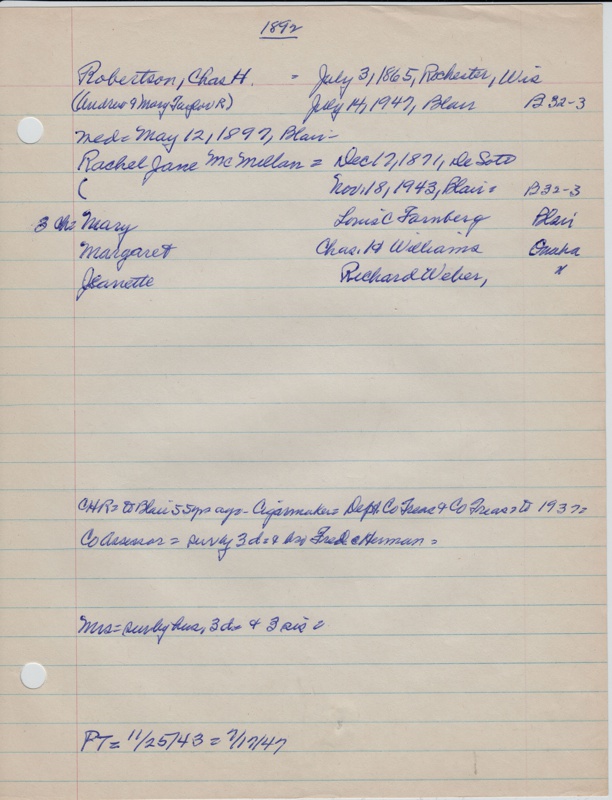 1892
Robertson, Chas H. = July 3, 1865, Rochester, Wis
(Andrew & Mary Taylor R) July 14, 1947, Blair B 32-3
med = May 12, 1897, Blair =
Rachel Jane McMillan = Dec 17, 1871, De Soto
( Nov. 18, 1943, Blair = B32-3
3 Ch = Mary Louis C Farnberg Blair
Margaret Chas. H Williams Omaha
Jeanette Richard Weber, x
CHR = to Blair 55 yrs ago - Cigarmaker = Dept Co Treas & Co Treas = to 1937 =
Co Assessor = surv by 3 d = & bro Fred & Herman =
Mrs = surv by hus, 3 d = & 3 sis =
PT = 11/25/43 = 7/17/47